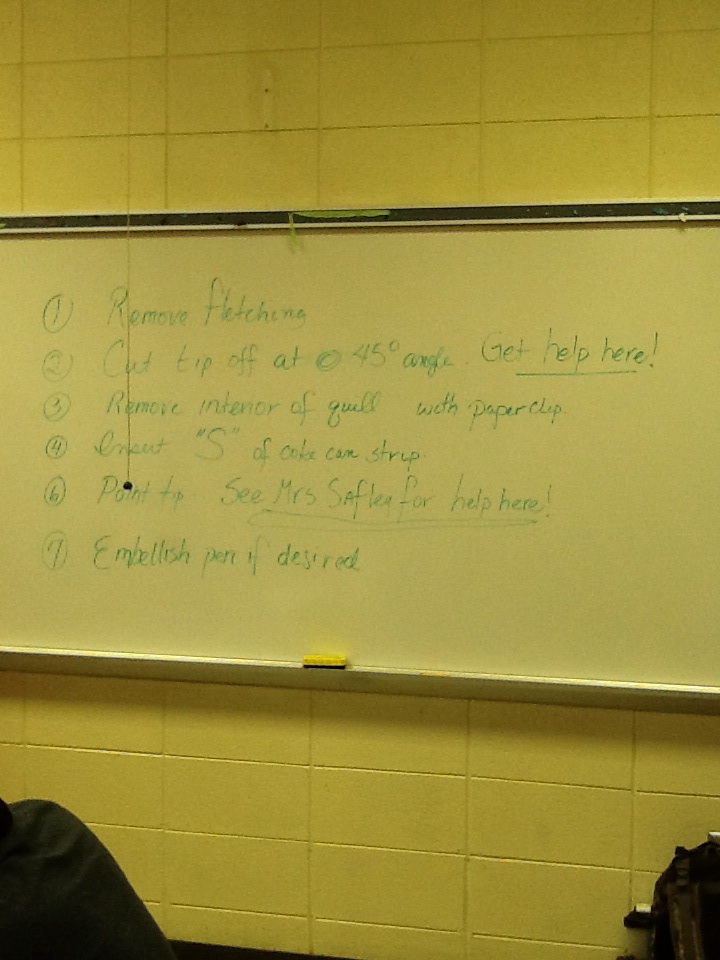 ① Remove fletching
② Cut tip off at @ 45° angle. Get help here!
③ Remove interior of quill with paperclip.
④ Insert "S" of coke can strip.
⑥ Point tip See Mrs Safley for help here!
⑦ Embellish pen if desired